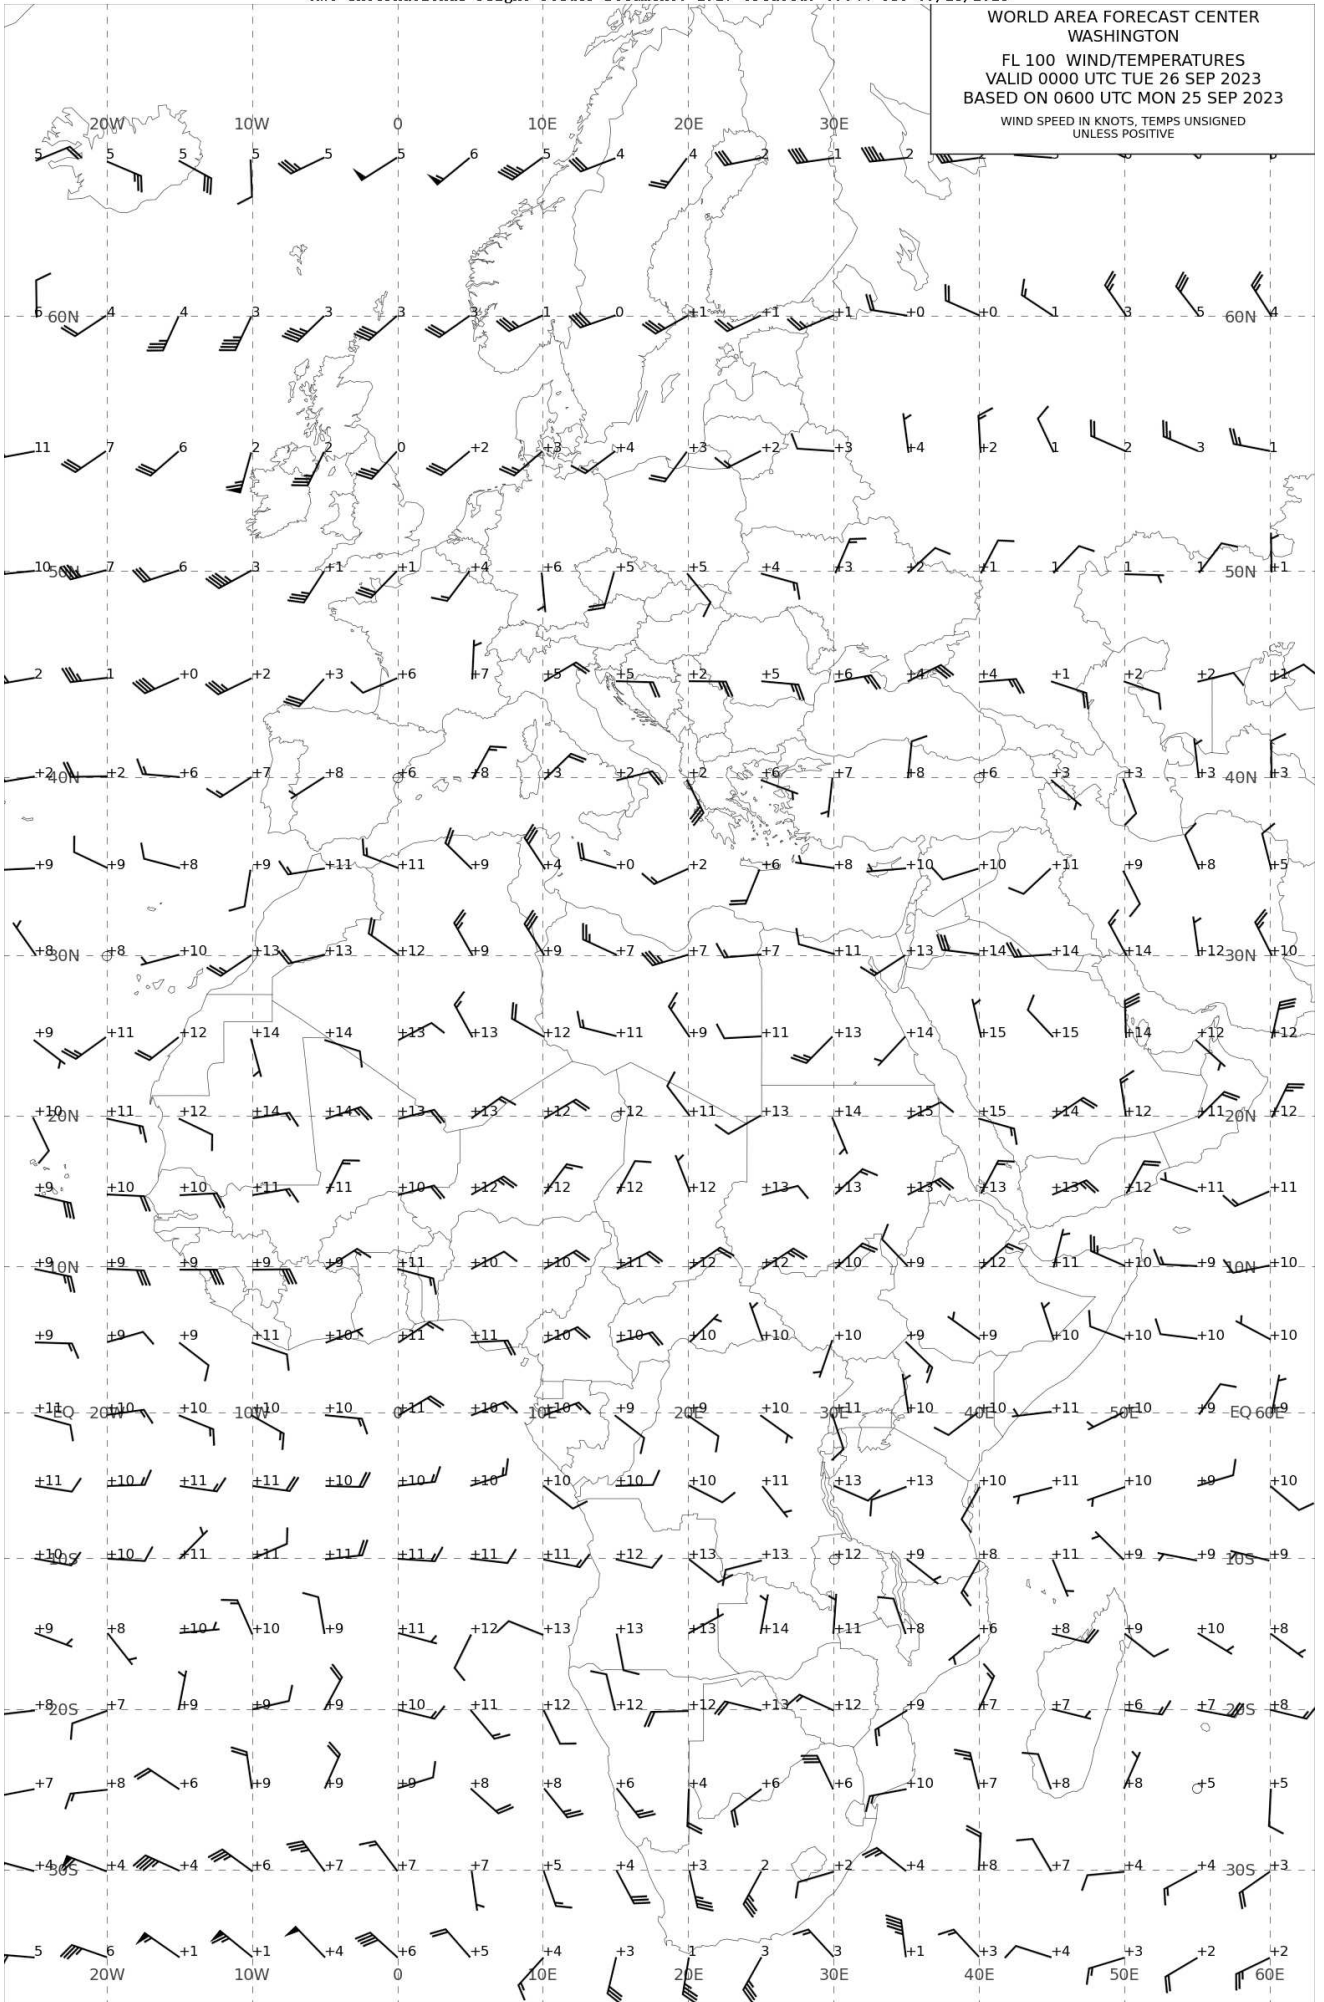 WORLD AREA FORECAST CENTER
WASHINGTON
FL 100 WIND/TEMPERATURES
VALID 0000 UTC TUE 26 SEP 2023
BASED ON 0600 UTC MON 25 SEP 2023
WIND SPEED IN KNOTS, TEMPS UNSIGNED
UNLESS POSITIVE
20W 10W 0 10E 20E 30E
5 5 5 5 5 5 6 5 4 4 2 1 2
6 60N 4 4 3 3 3 3 1 0 +1 +1 +1 +0 +0 1 3 5 60N 4
11 7 6 2 2 0 +2 +3 +4 +3 +2 +3 +4 +2 1 2 3 1
10 50N 7 6 3 +1 +1 +4 +6 +5 +5 +4 +3 +2 +1 1 1 1 50N +1
2 1 +0 +2 +3 +6 +7 +5 +5 +2 +5 +6 +4 +4 +1 +2 +2 +1
+2 40N +2 +6 +7 +8 +6 +8 +3 +2 +2 +6 +7 +8 +6 +3 +3 +3 40N +3
+9 +9 +8 +9 +11 +11 +9 +4 +0 +2 +6 +8 +10 +10 +11 +9 +8 +5
+8 30N +8 +10 +13 +13 +12 +9 +9 +7 +7 +7 +11 +13 +14 +14 +14 +12 30N +10
+9 +11 +12 +14 +14 +13 +13 +12 +11 +9 +11 +13 +14 +15 +15 +14 +12 +12
+10 20N +11 +12 +14 +14 +13 +13 +12 +12 +11 +13 +14 +15 +15 +14 +12 +11 20N +12
+9 +10 +10 +11 +11 +10 +12 +12 +12 +12 +13 +13 +13 +13 +13 +12 +11 +11
+9 10N +9 +9 +9 +9 +11 +10 +10 +11 +12 +12 +10 +9 +12 +11 +10 +9 10N +10
+9 +9 +9 +11 +10 +11 +11 +10 +10 +10 +10 +10 +9 +9 +10 +10 +10 +10
+11 EQ 20W +10 +10 10W +10 +10 0 +11 +10 10E +10 +9 20E +9 +10 30E +11 +10 40E +10 +11 50E +10 +9 EQ 60E +9
+11 +10 +11 +11 +10 +10 +10 +10 +10 +10 +11 +13 +13 +10 +11 +10 +9 +10
+10 10S +10 +11 +11 +11 +11 +11 +11 +12 +13 +13 +12 +9 +8 +11 +9 +9 10S +9
+9 +8 +10 +10 +9 +11 +12 +13 +13 +13 +14 +11 +8 +6 +8 +9 +10 +8
+8 20S +7 +9 +9 +9 +10 +11 +12 +12 +12 +13 +12 +9 +7 +7 +6 +7 20S +8
+7 +8 +6 +9 +9 +9 +8 +8 +6 +4 +6 +6 +10 +7 +8 +8 +5 +5
+4 30S +4 +4 +6 +7 +7 +7 +5 +4 +3 2 +2 +4 +8 +7 +4 +4 30S +3
5 6 +1 +1 +4 +6 +5 +4 +3 1 3 3 +1 +3 +4 +3 +2 +2
20W 10W 0 10E 20E 30E 40E 50E 60E